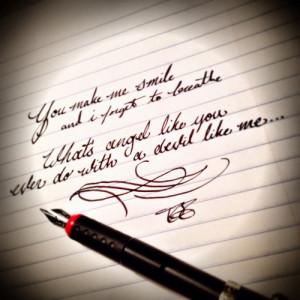 You make me smile
and i forget to breathe
Whats angel like you
ever do with a devil like me...